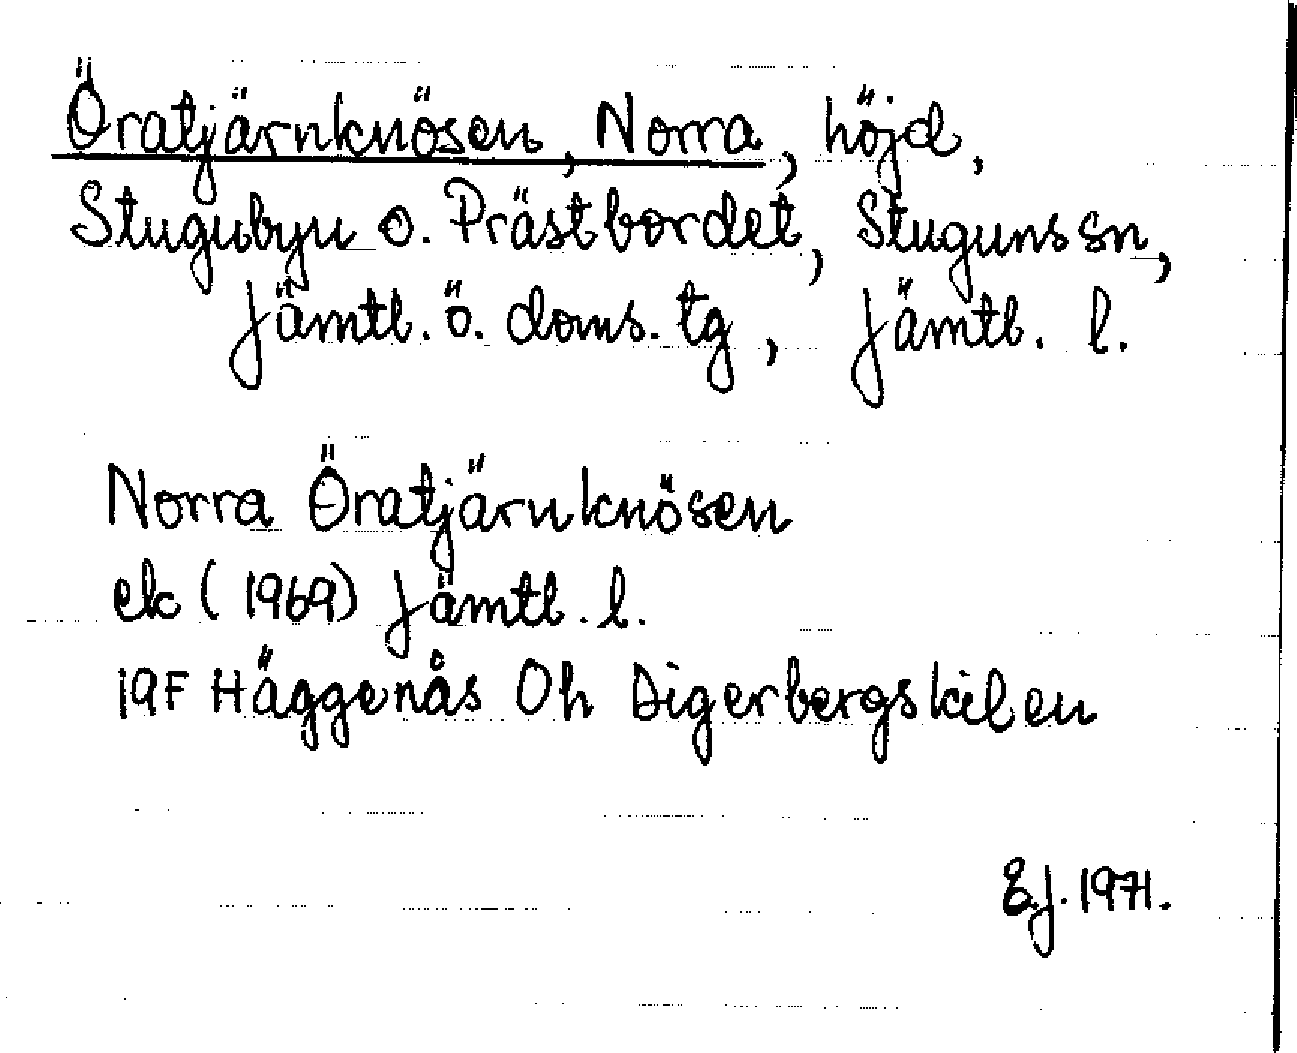 Öratjärnknösen, Norra, höjd,
Stugubyn o. Prästbordet, Stuguns sn,
Jämtl. ö. doms. tg, Jämtl. l.
Norra Öratjärnknösen
ek (1969) Jämtl. l.
19F Häggenås Oh Digerbergskilen
E.J. 1971.